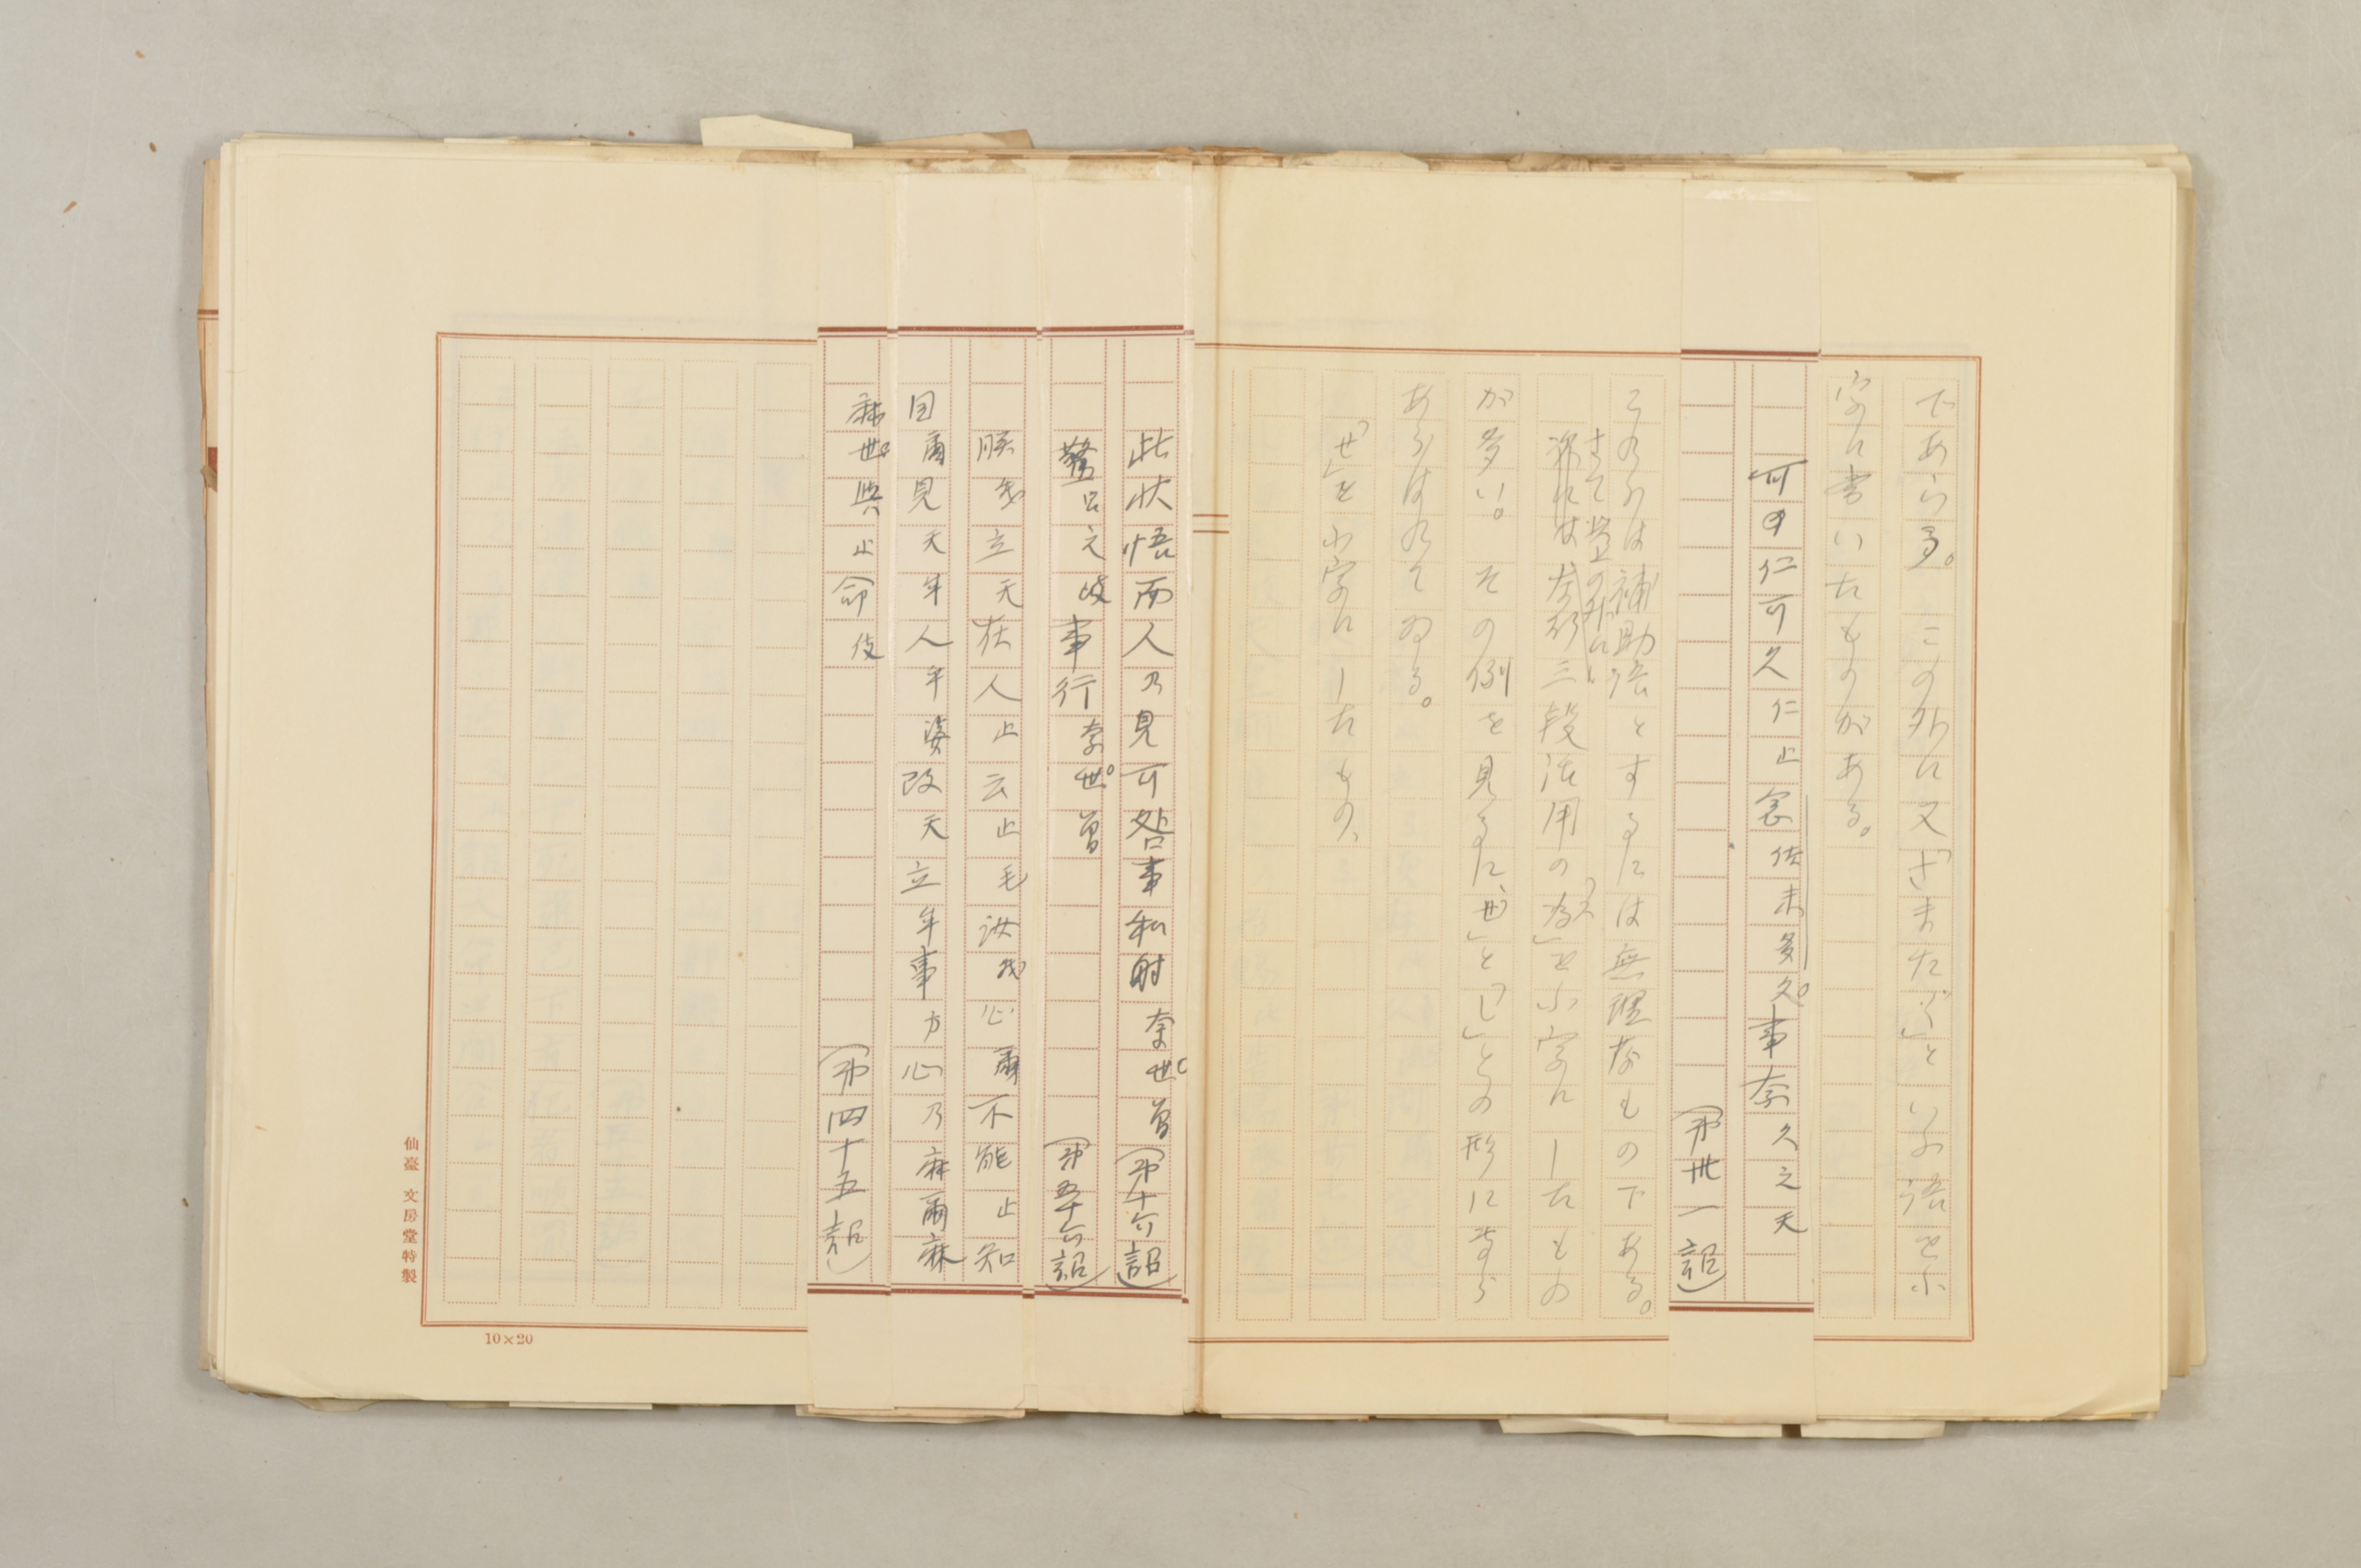 である。この外に又「さまたぐ」といふ語を小
字に書いたものがある。
可久仁止念佐末多久事奈久之天
(第卅一詔)
これらは補助語とするには無理なものである。
さて並上の外に
三段活用の「為」を小字にしたもの
が多い。その例を見るに、「世」と「し」との形に専ら
あらはれてゐる。
「世」を小字にしたもの、
此状悟而人乃見可咎事和射奈世曽(第十六詔)
諸之岐事行奈世曽(第五十六詔)
朕我立天在人止云止毛汝我心爾不能止知
目爾見天牟人乎婆改天立牟事方心乃麻爾麻
麻世與止命伎(第四十五詔)
仙臺 文房堂特製
10×20